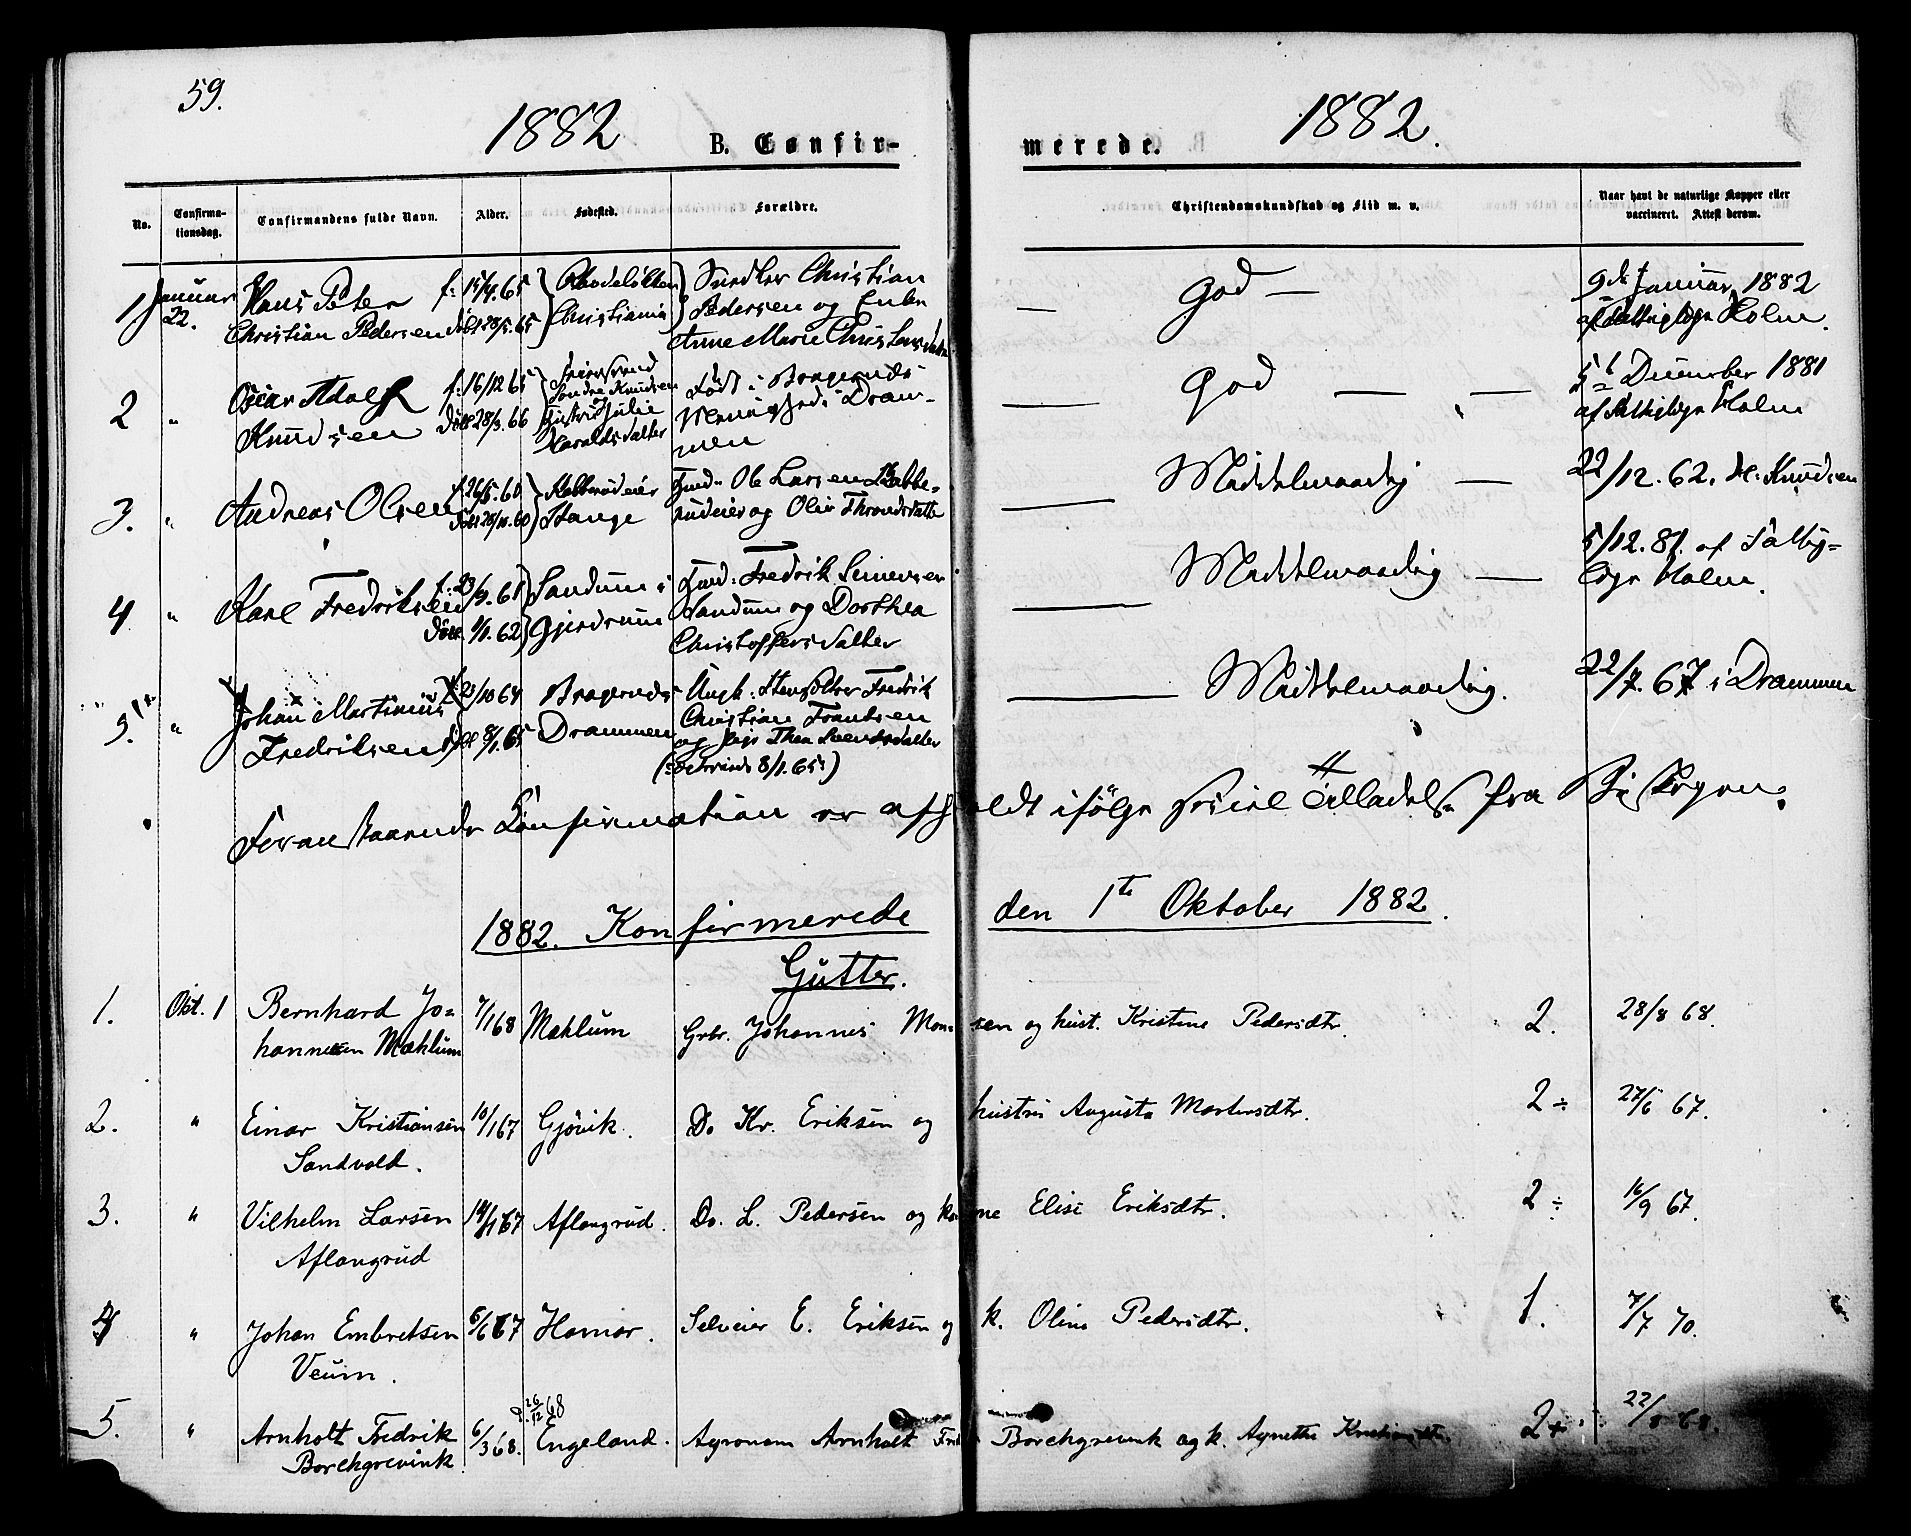 59.
1882 B. Confir- merede. 1882.
No. Confirma-tionsdag. Confirmandens fulde Navn. Alder. Fødested. Forældre. Christendomskundskab og Flid m. v. Naar havt de naturlige Kopper eller vaccineret. Attest derom.
1 Januar Hans Peter f. 15/4.65 Rodeløkken Snedker Christian — God — 9de Januar 1882
22. Christian Pedersen døbt 28/5.65 Christiania Pedersen og Enke Holm.
Anne Marie Christensdatter
2 " Oscar Adolf f. 16/12 65 Født i Bragernæs — God — — 5te December 1881
Knudsen døbt 28/3.66 Hustru Julie Menighed i Dram- af Holm
Haraldsdatter men
3. " Andreas Olsen f. 26/5.60 Husm. Ole Larsen — Middelmaadig — 22/12.62. Knudsen
døbt 28/10.60 Stange og Olia Throndsdatter
4 " Karl Fredriksen f. 23/9.61 Sandum i Husm. Fredrik Simensen — Middelmaadig — 5/12.81. af
døbt 1/1.62 Gjerdrum Sandum og Dorthea Holm.
Christoffersdatter
5. " Johan Martinius 23/10 64 Bragernæs Ungk. Fredrik — Middelmaadig. 22/7.67 i Drammen
Fredriksen døbt 8/1.65 Drammen Christian Frandsen
og Pige Thea Svendsdatter
8/1.65
Foranstaaende Konfirmation er afholdt ifølge speciel Tilladelse fra Biskopen.
1882. Konfirmerede den 1te Oktober 1882.
Gutter.
1. Okt. 1 Bernhard Jo- 7/1 68 Mæhlum Grbr. Johannes Monsen og hust. Kristine Pedersdtr. 2. 28/8 68.
hannesen Mæhlum
2. " Einar Kristiansen 10/1 67 Gjøvik. Do. Kr. Eriksen og hustru Augusta Martersdtr. 2÷ 27/6 67.
Sandvold.
3. " Vilhelm Larsen 14/1 67 Aflangrud. Do. L. Pedersen og kone Elise Eriksdtr. 2÷ 16/9 67.
Aflangrud
4 " Johan Embretsen 6/6 67 Hamar. Selveier E. Eriksen og k. Oline Pedersdtr. 1. 7/7 70.
Veum.
26/12 68
5. " Arnholt Fredrik 6/3 68. Engeland. Agronom Arnholt Fredr. Borchgrevink og k. Agnethe Kristiansdtr. 2+ 22/8 68.
Borchgrevink